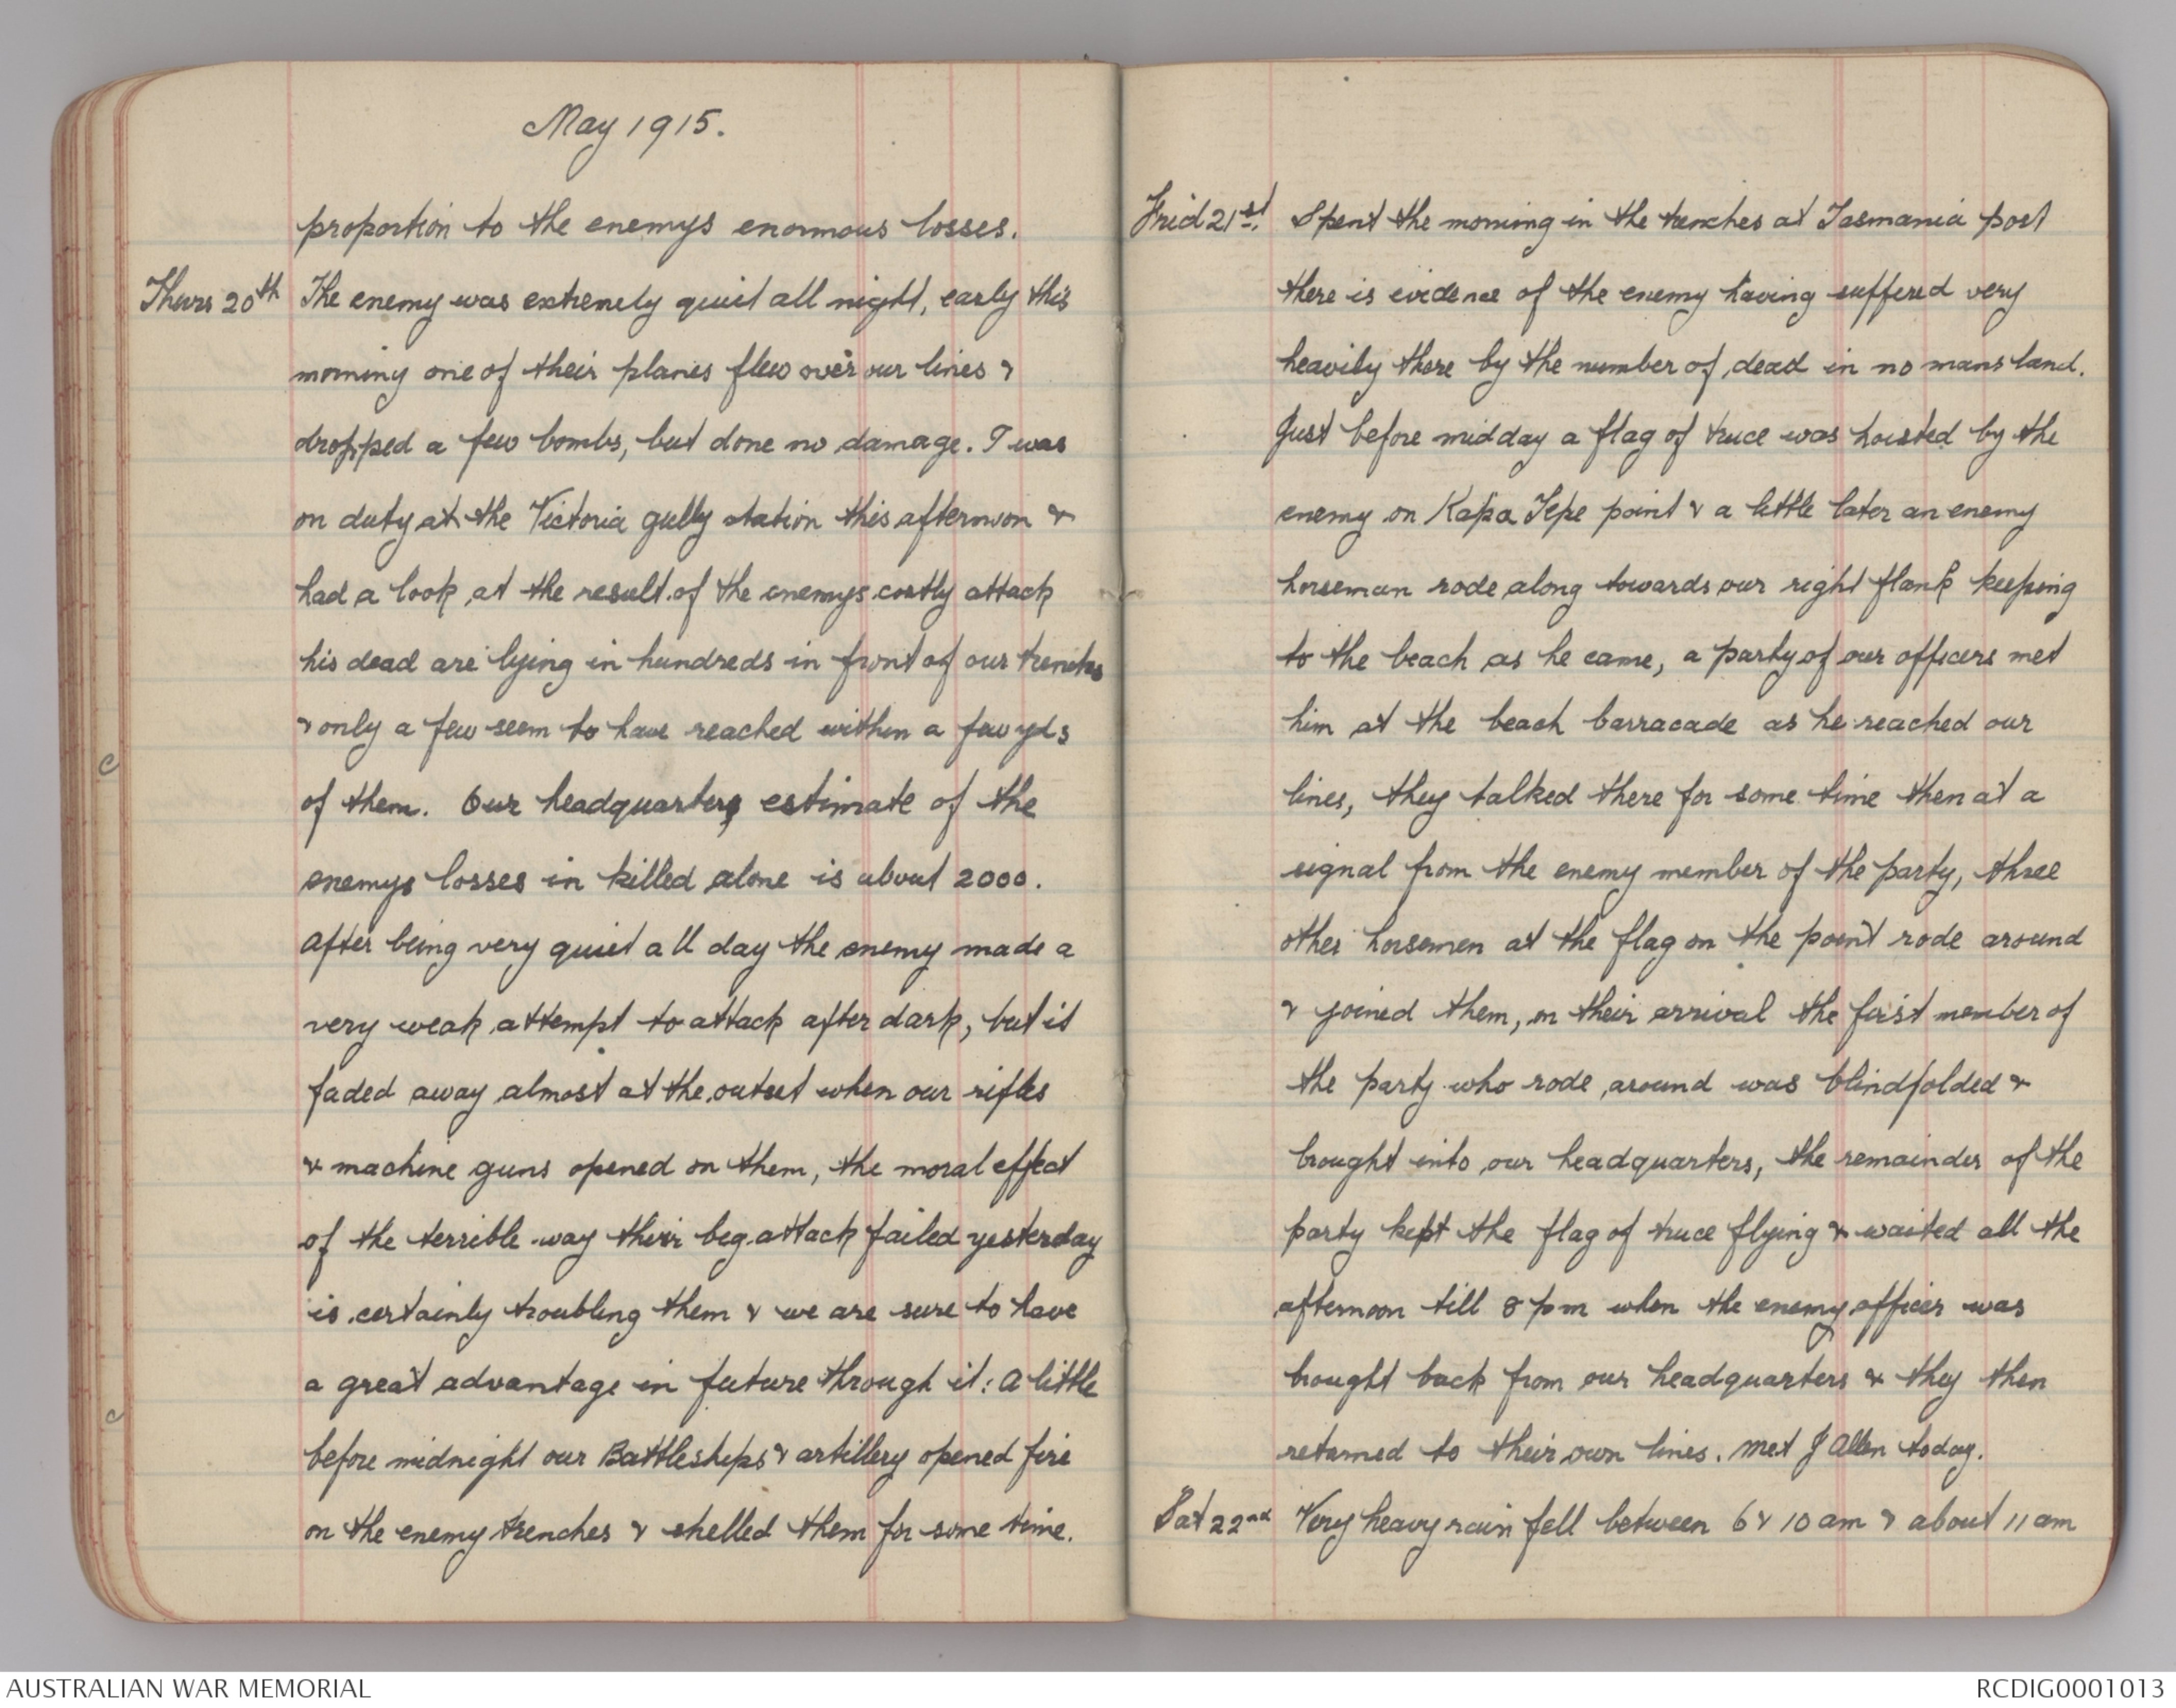 May 1915.
proportion to the enemys enormous losses.
Thurs 20th The enemy was extremely quiet all night, early this
morning one of their planes flew over our lines &
dropped a few bombs, but done no damage. I was
on duty at the Victoria gully station this afternoon &
had a look at the result of the enemys costly attack
his dead are lying in hundreds in front of our trenches
& only a few seem to have reached within a few yds
of them. Our headquarters estimate of the
enemys losses in killed alone is about 2000.
After being very quiet all day the enemy made a
very weak attempt to attack after dark, but it
faded away almost at the outset when our rifles
& machine guns opened on them, the moral effect
of the terrible way their beg attack failed yesterday
is certainly troubling them & we are sure to have
a great advantage in future through it: A little
before midnight our Battleships & artillery opened fire
on the enemy trenches & shelled them for some time.
Frid 21st. Spent the morning in the trenches at Tasmania post
there is evidence of the enemy having suffered very
heavily there by the number of dead in no mans land.
Just before midday a flag of truce was hoisted by the
enemy on Kapa Tepe point & a little later an enemy
horseman rode along towards our right flank keeping
to the beach as he came, a party of our officers met
him at the beach barracade as he reached our
lines, they talked there for some time then at a
signal from the enemy member of the party, three
other horsemen at the flag on the point rode around
& joined them, on their arrival the first member of
the party who rode around was blindfolded &
brought into our headquarters, the remainder of the
party kept the flag of truce flying & waited all the
afternoon till 8 pm when the enemy officer was
brought back from our headquarters & they then
returned to their own lines. Met J Allen today.
Sat 22nd Very heavy rain fell between 6 & 10 am & about 11 am
AUSTRALIAN WAR MEMORIAL
RCDIG0001013